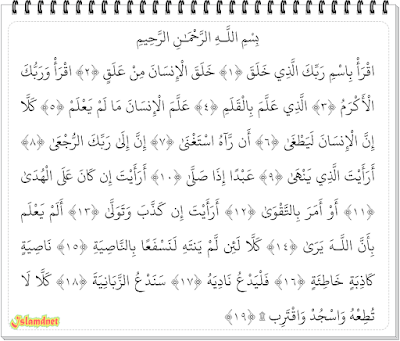 بِسْمِ اللَّـهِ الرَّحْمَـٰنِ الرَّحِيمِ
اقْرَأْ بِاسْمِ رَبِّكَ الَّذِي خَلَقَ ﴿١﴾ خَلَقَ الْإِنسَانَ مِنْ عَلَقٍ ﴿٢﴾ اقْرَأْ وَرَبُّكَ
الْأَكْرَمُ ﴿٣﴾ الَّذِي عَلَّمَ بِالْقَلَمِ ﴿٤﴾ عَلَّمَ الْإِنسَانَ مَا لَمْ يَعْلَمْ ﴿٥﴾ كَلَّا
إِنَّ الْإِنسَانَ لَيَطْغَىٰ ﴿٦﴾ أَن رَّآهُ اسْتَغْنَىٰ ﴿٧﴾ إِنَّ إِلَىٰ رَبِّكَ الرُّجْعَىٰ ﴿٨﴾
أَرَأَيْتَ الَّذِي يَنْهَىٰ ﴿٩﴾ عَبْدًا إِذَا صَلَّىٰ ﴿١٠﴾ أَرَأَيْتَ إِن كَانَ عَلَى الْهُدَىٰ
﴿١١﴾ أَوْ أَمَرَ بِالتَّقْوَىٰ ﴿١٢﴾ أَرَأَيْتَ إِن كَذَّبَ وَتَوَلَّىٰ ﴿١٣﴾ أَلَمْ يَعْلَم
بِأَنَّ اللَّـهَ يَرَىٰ ﴿١٤﴾ كَلَّا لَئِن لَّمْ يَنتَهِ لَنَسْفَعًا بِالنَّاصِيَةِ ﴿١٥﴾ نَاصِيَةٍ
كَاذِبَةٍ خَاطِئَةٍ ﴿١٦﴾ فَلْيَدْعُ نَادِيَهُ ﴿١٧﴾ سَنَدْعُ الزَّبَانِيَةَ ﴿١٨﴾ كَلَّا لَا
تُطِعْهُ وَاسْجُدْ وَاقْتَرِب ۩ ﴿١٩﴾
islamdnet